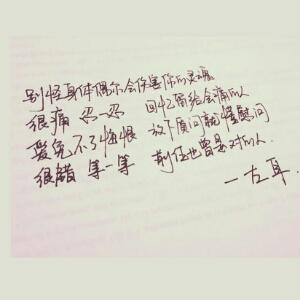 别怪身体偶尔会伤害你的灵魂
很痛 忍一忍 回忆留给会痛的人
爱免不了悔恨 放下质问就懂慰问
很错 等一等 前任也曾是对的人
一左耳.